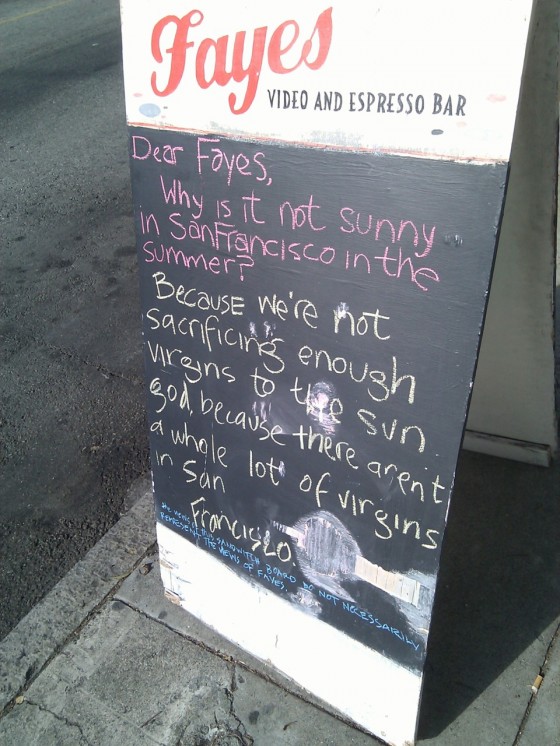 Fayes
VIDEO AND ESPRESSO BAR
Dear Fayes,
Why is it not sunny
in SanFrancisco in the
summer?
Because we're not
sacrificing enough
virgins to the sun
god, because there aren't
a whole lot of virgins
in San
Francisco.
THE VIEWS OF THIS SANDWITCH BOARD DO NOT NECESSARILY
REPRESENT THE VIEWS OF FAYES.